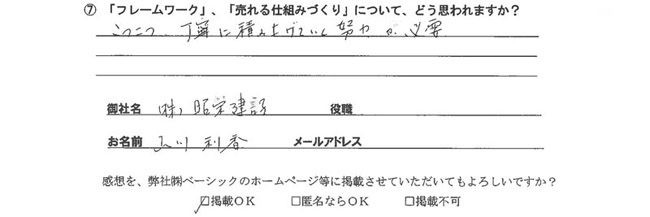 ⑦ 「フレームワーク」、「売れる仕組みづくり」について、どう思われますか？
こつこつ、丁寧に積み上げていく努力が必要
御社名 (株)昭栄建設 役職
お名前 川 利香 メールアドレス
感想を、弊社㈱ベーシックのホームページ等に掲載させていただいてもよろしいですか？
☑掲載ＯＫ □匿名ならＯＫ □掲載不可